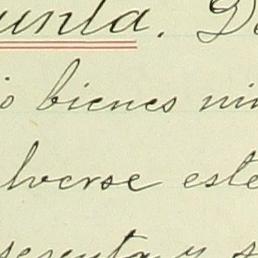 unta. D
o bienes nin
lverse este
sesenta y s